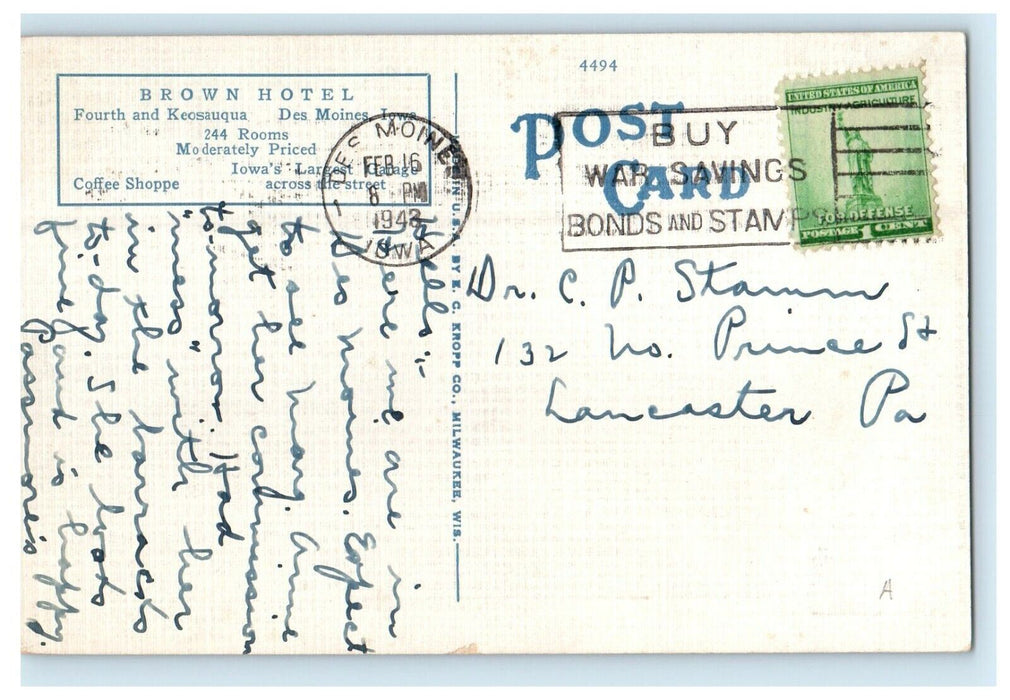 4494
BROWN HOTEL
Fourth and Keosauqua Des Moines, Iowa
244 Rooms
Moderately Priced
Iowa's Largest Garage
Coffee Shoppe across the street
POST
CARD
DES MOINES
FEB 16
8 PM
1943
IOWA
BUY
WAR SAVINGS
BONDS AND STAMPS
UNITED STATES OF AMERICA
INDUSTRY-AGRICULTURE
FOR DEFENSE
POSTAGE 1 CENT
IN U.S.A. BY E. C. KROPP CO., MILWAUKEE, WIS.
Hello -
Here we are in
Des Moines. Expect
to see
get her commission
to-morrow. Had
"mess" with her
in the barracks
to-day. She looks
fine and is happy.
Passmores
Dr. C. P. Stamm
132 No. Prince St
Lancaster Pa
A